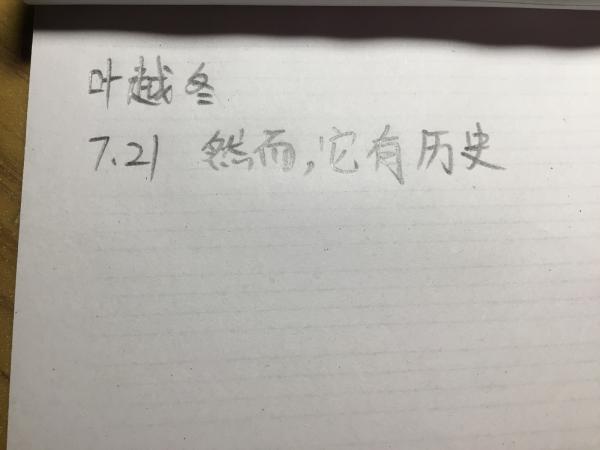 叶越冬
7.21 然而,它有历史